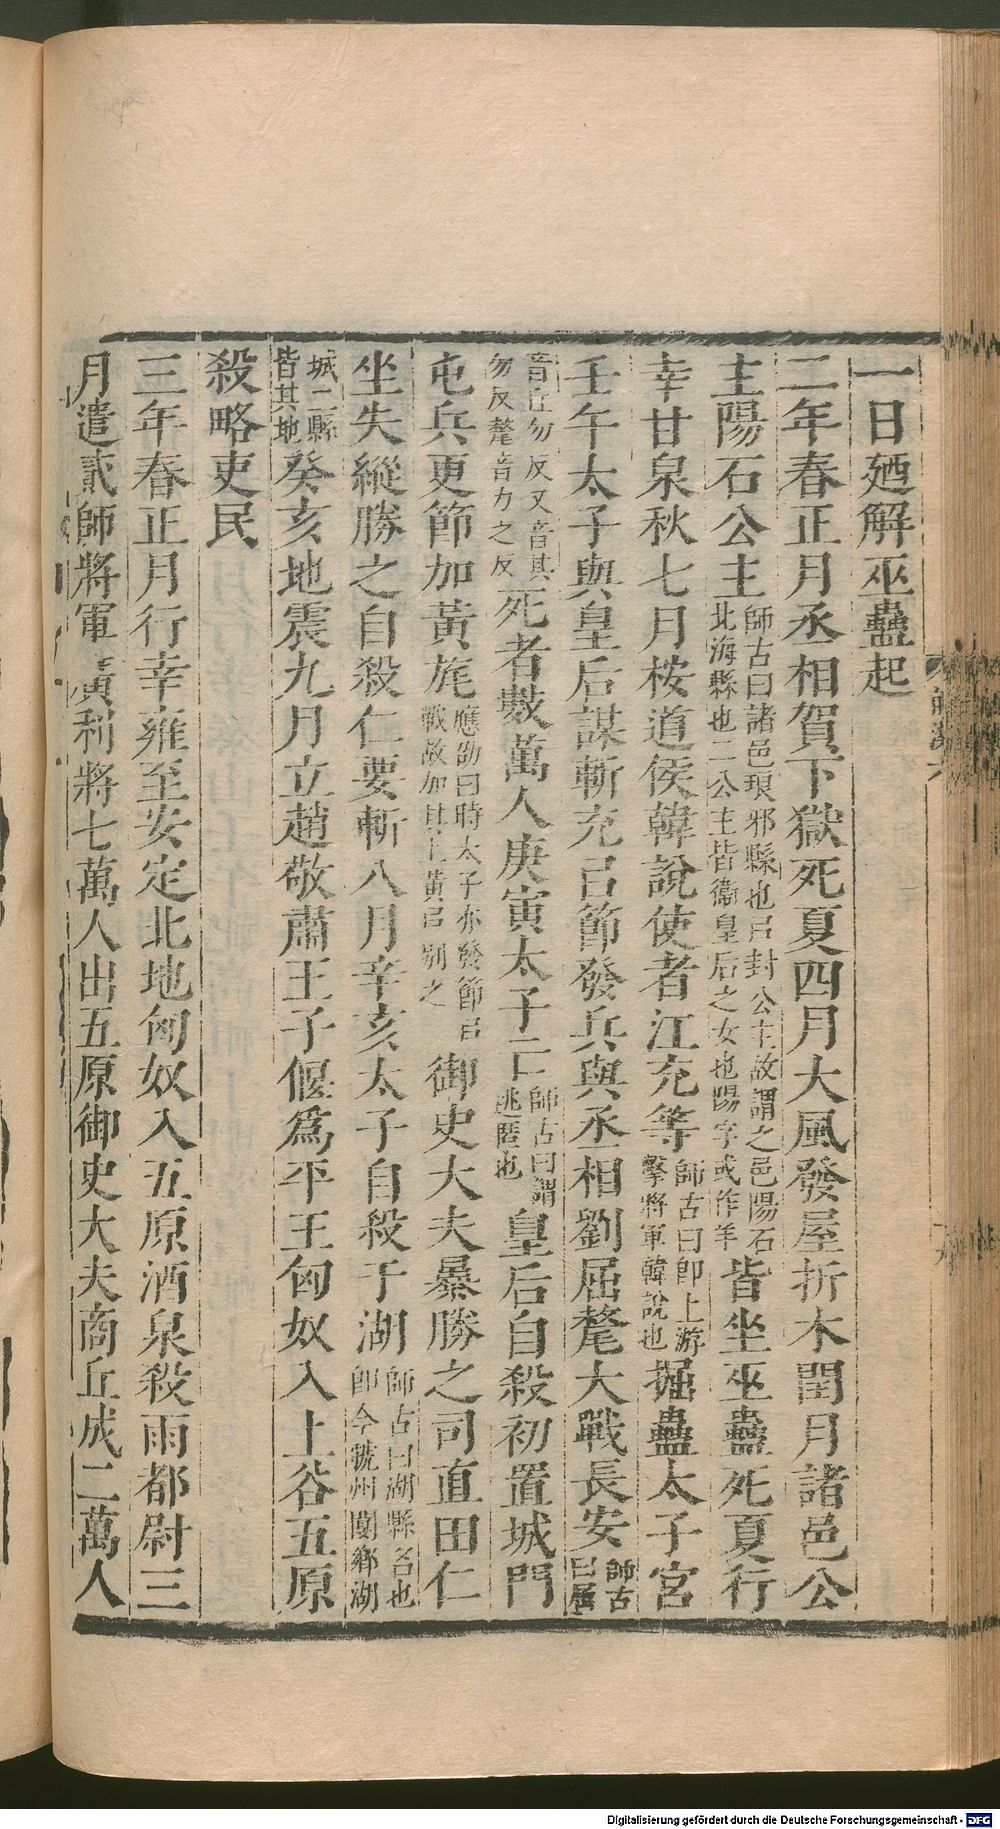 一日廼解巫蠱起
二年春正月丞相賀下獄死夏四月大風發屋折木閏月諸邑公
主陽石公主師古曰諸邑琅邪縣也㠯封公主故謂之邑陽石北海縣也二公主皆衞皇后之女也陽字或作羊皆坐巫蠱死夏行
幸甘泉秋七月桉道侯韓說使者江充等師古曰即上游擊將軍韓說也掘蠱太子宮
壬午太子與皇后謀斬充㠯節發兵與丞相劉屈氂大戰長安師古曰屈
音丘勿反又音其勿反氂音力之反死者數萬人庚寅太子亡師古曰謂逃匿也皇后自殺初置城門
屯兵更節加黃旄應劭曰時太子亦發節㠯戰故加其上黃㠯別之御史大夫暴勝之司直田仁
坐失縱勝之自殺仁要斬八月辛亥太子自殺于湖師古曰湖縣名也即今虢州閿鄉湖
城二縣皆其地癸亥地震九月立趙敬肅王子偃爲平王匈奴入上谷五原
殺略吏民
三年春正月行幸雍至安定北地匈奴入五原酒泉殺兩都尉三
月遣貳師將軍廣利將七萬人出五原御史大夫商丘成二萬人
Digitalisierung gefördert durch die Deutsche Forschungsgemeinschaft - DFG